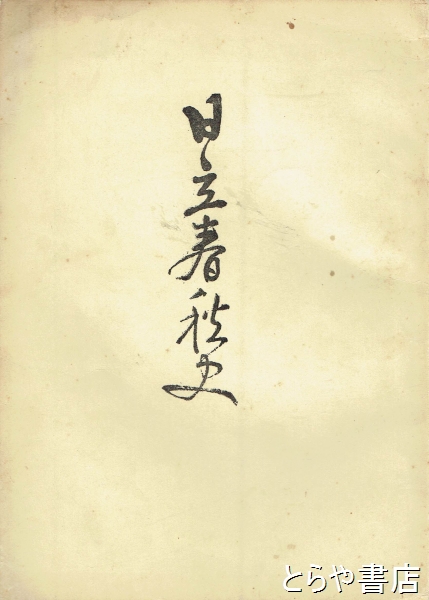 日立春秋史
とらや書店